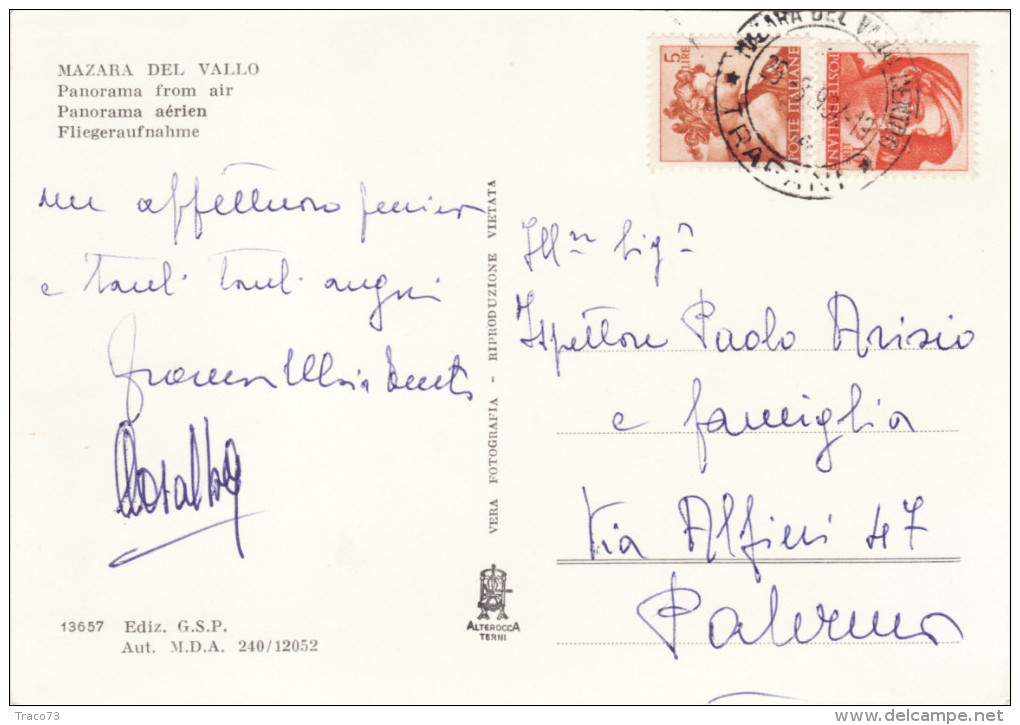 MAZARA DEL VALLO
Panorama from air
Panorama aérien
Fliegeraufnahme
un affettuoso pensiero
e tanti tanti auguri
Rosalba
13657 Ediz. G.S.P.
Aut. M.D.A. 240/12052
VERA FOTOGRAFIA - RIPRODUZIONE VIETATA
ALTEROCCA
TERNI
5 LIRE
POSTE ITALIANE
POSTE ITALIANE
MAZARA DEL VALLO CENTRO
* TRAPANI *
Ill.mo Sig.
Ispettore Paolo Arisio
e famiglia
Via Alfieri 47
Palermo
Traco73
www.delcampe.net